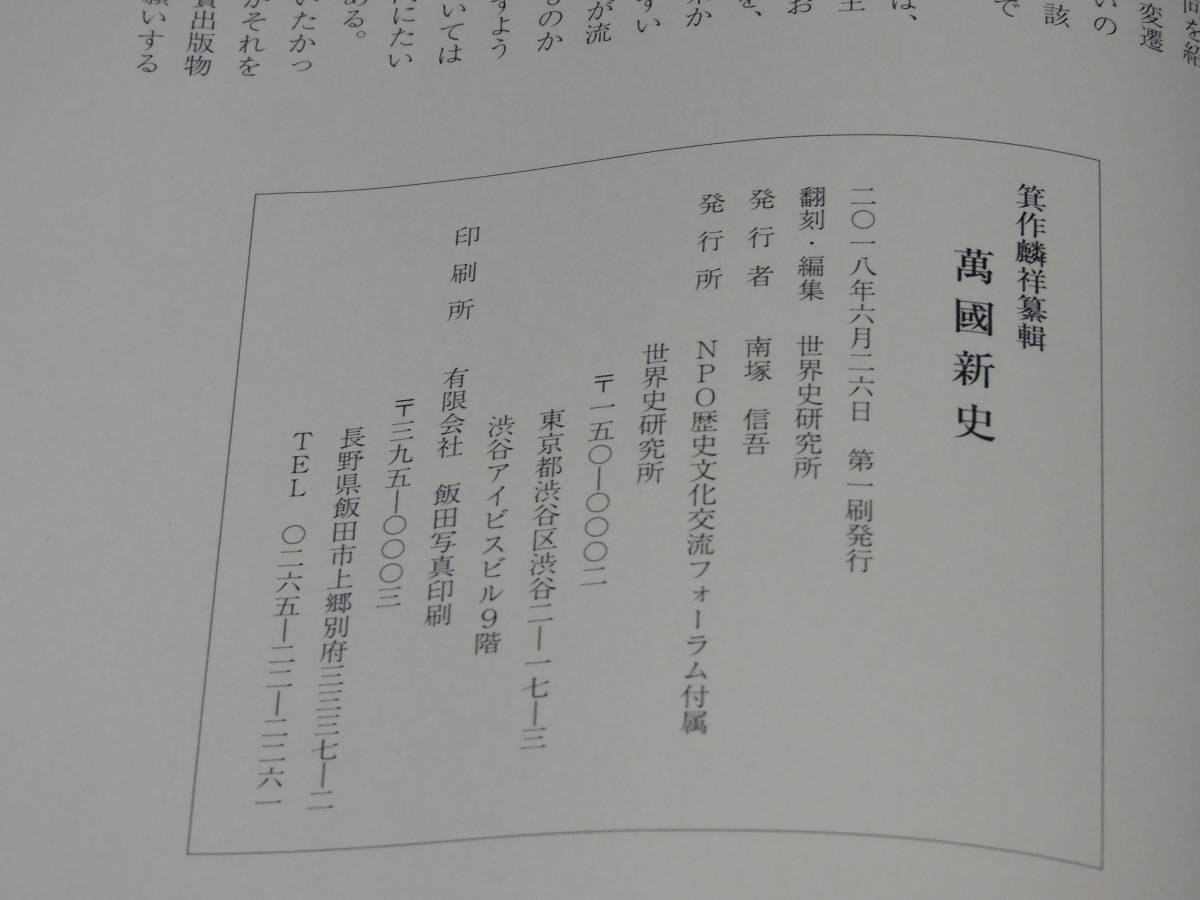 を紹
変遷
いの
該、
で
は、
お
を、
か
すい
が流
ものか
すよう
いては
にたい
ある。
いたかっ
がそれを
出版物
願いする
箕作麟祥纂輯
萬國新史
二〇一八年六月二六日　第一刷発行
翻刻・編集　世界史研究所
発行者　南塚　信吾
発行所　NPO歴史文化交流フォーラム付属
世界史研究所
〒一五〇―〇〇〇二
東京都渋谷区渋谷二―一七―三
渋谷アイビスビル9階
印刷所　有限会社　飯田写真印刷
〒三九五―〇〇〇三
長野県飯田市上郷別府三三三七―二
TEL　〇二六五―二二―二二六一